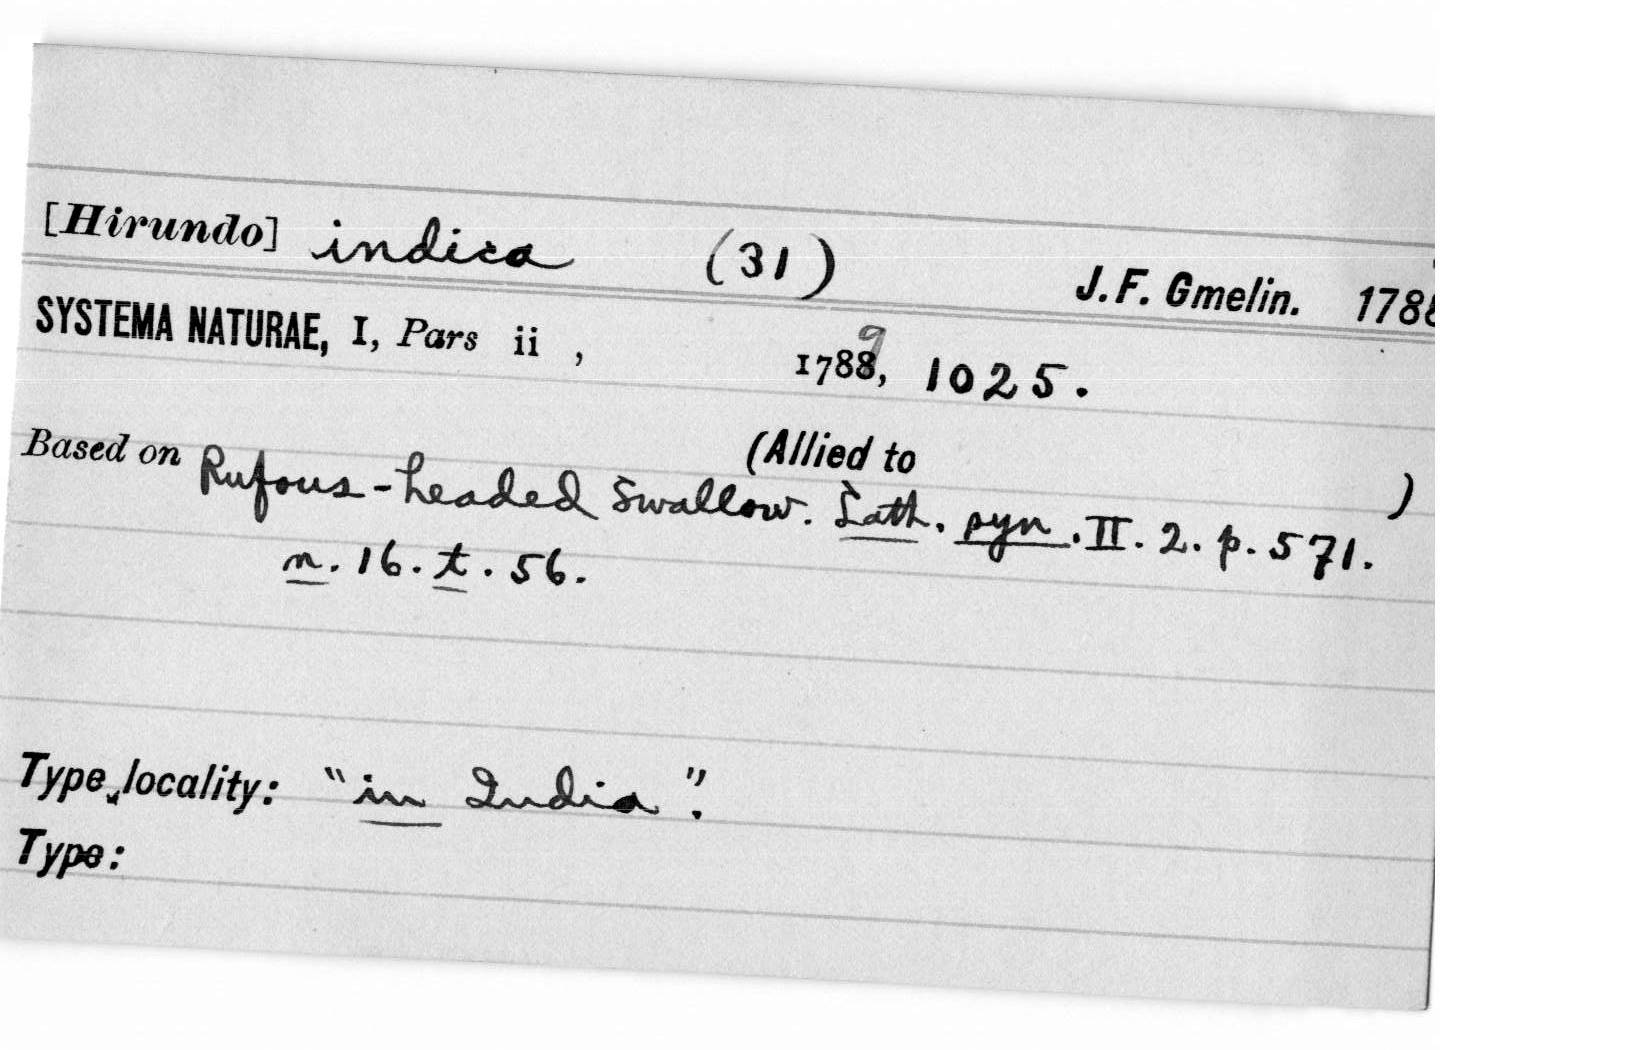 [Hirundo] indica (31) J. F. Gmelin. 1788
SYSTEMA NATURAE, I, Pars ii , 1788, 9 1025.
(Allied to )
Based on Rufous-headed Swallow. Lath. syn. II. 2. p. 571.
n. 16. t. 56.
Type locality: "in India".
Type: